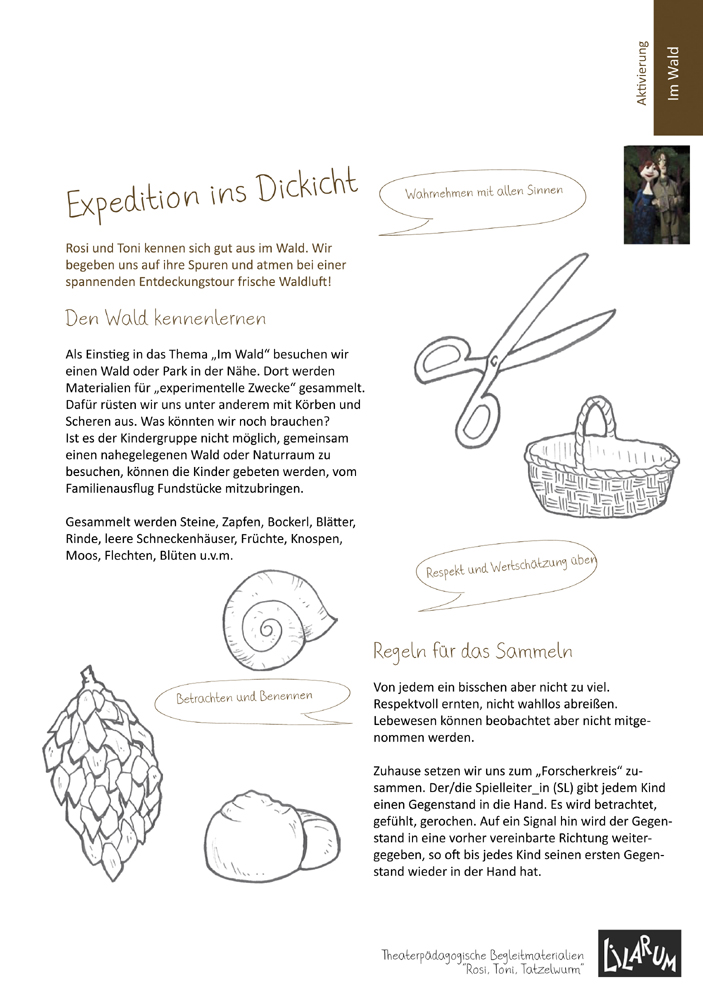 Aktivierung
Im Wald
Expedition ins Dickicht
Wahrnehmen mit allen Sinnen
Rosi und Toni kennen sich gut aus im Wald. Wir
begeben uns auf ihre Spuren und atmen bei einer
spannenden Entdeckungstour frische Waldluft!
Den Wald kennenlernen
Als Einstieg in das Thema „Im Wald“ besuchen wir
einen Wald oder Park in der Nähe. Dort werden
Materialien für „experimentelle Zwecke“ gesammelt.
Dafür rüsten wir uns unter anderem mit Körben und
Scheren aus. Was könnten wir noch brauchen?
Ist es der Kindergruppe nicht möglich, gemeinsam
einen nahegelegenen Wald oder Naturraum zu
besuchen, können die Kinder gebeten werden, vom
Familienausflug Fundstücke mitzubringen.
Gesammelt werden Steine, Zapfen, Bockerl, Blätter,
Rinde, leere Schneckenhäuser, Früchte, Knospen,
Moos, Flechten, Blüten u.v.m.
Betrachten und Benennen
Respekt und Wertschätzung üben
Regeln für das Sammeln
Von jedem ein bisschen aber nicht zu viel.
Respektvoll ernten, nicht wahllos abreißen.
Lebewesen können beobachtet aber nicht mitge-
nommen werden.
Zuhause setzen wir uns zum „Forscherkreis“ zu-
sammen. Der/die Spielleiter_in (SL) gibt jedem Kind
einen Gegenstand in die Hand. Es wird betrachtet,
gefühlt, gerochen. Auf ein Signal hin wird der Gegen-
stand in eine vorher vereinbarte Richtung weiter-
gegeben, so oft bis jedes Kind seinen ersten Gegen-
stand wieder in der Hand hat.
Theaterpädagogische Begleitmaterialien
"Rosi, Toni, Tatzelwurm"
LILARUM